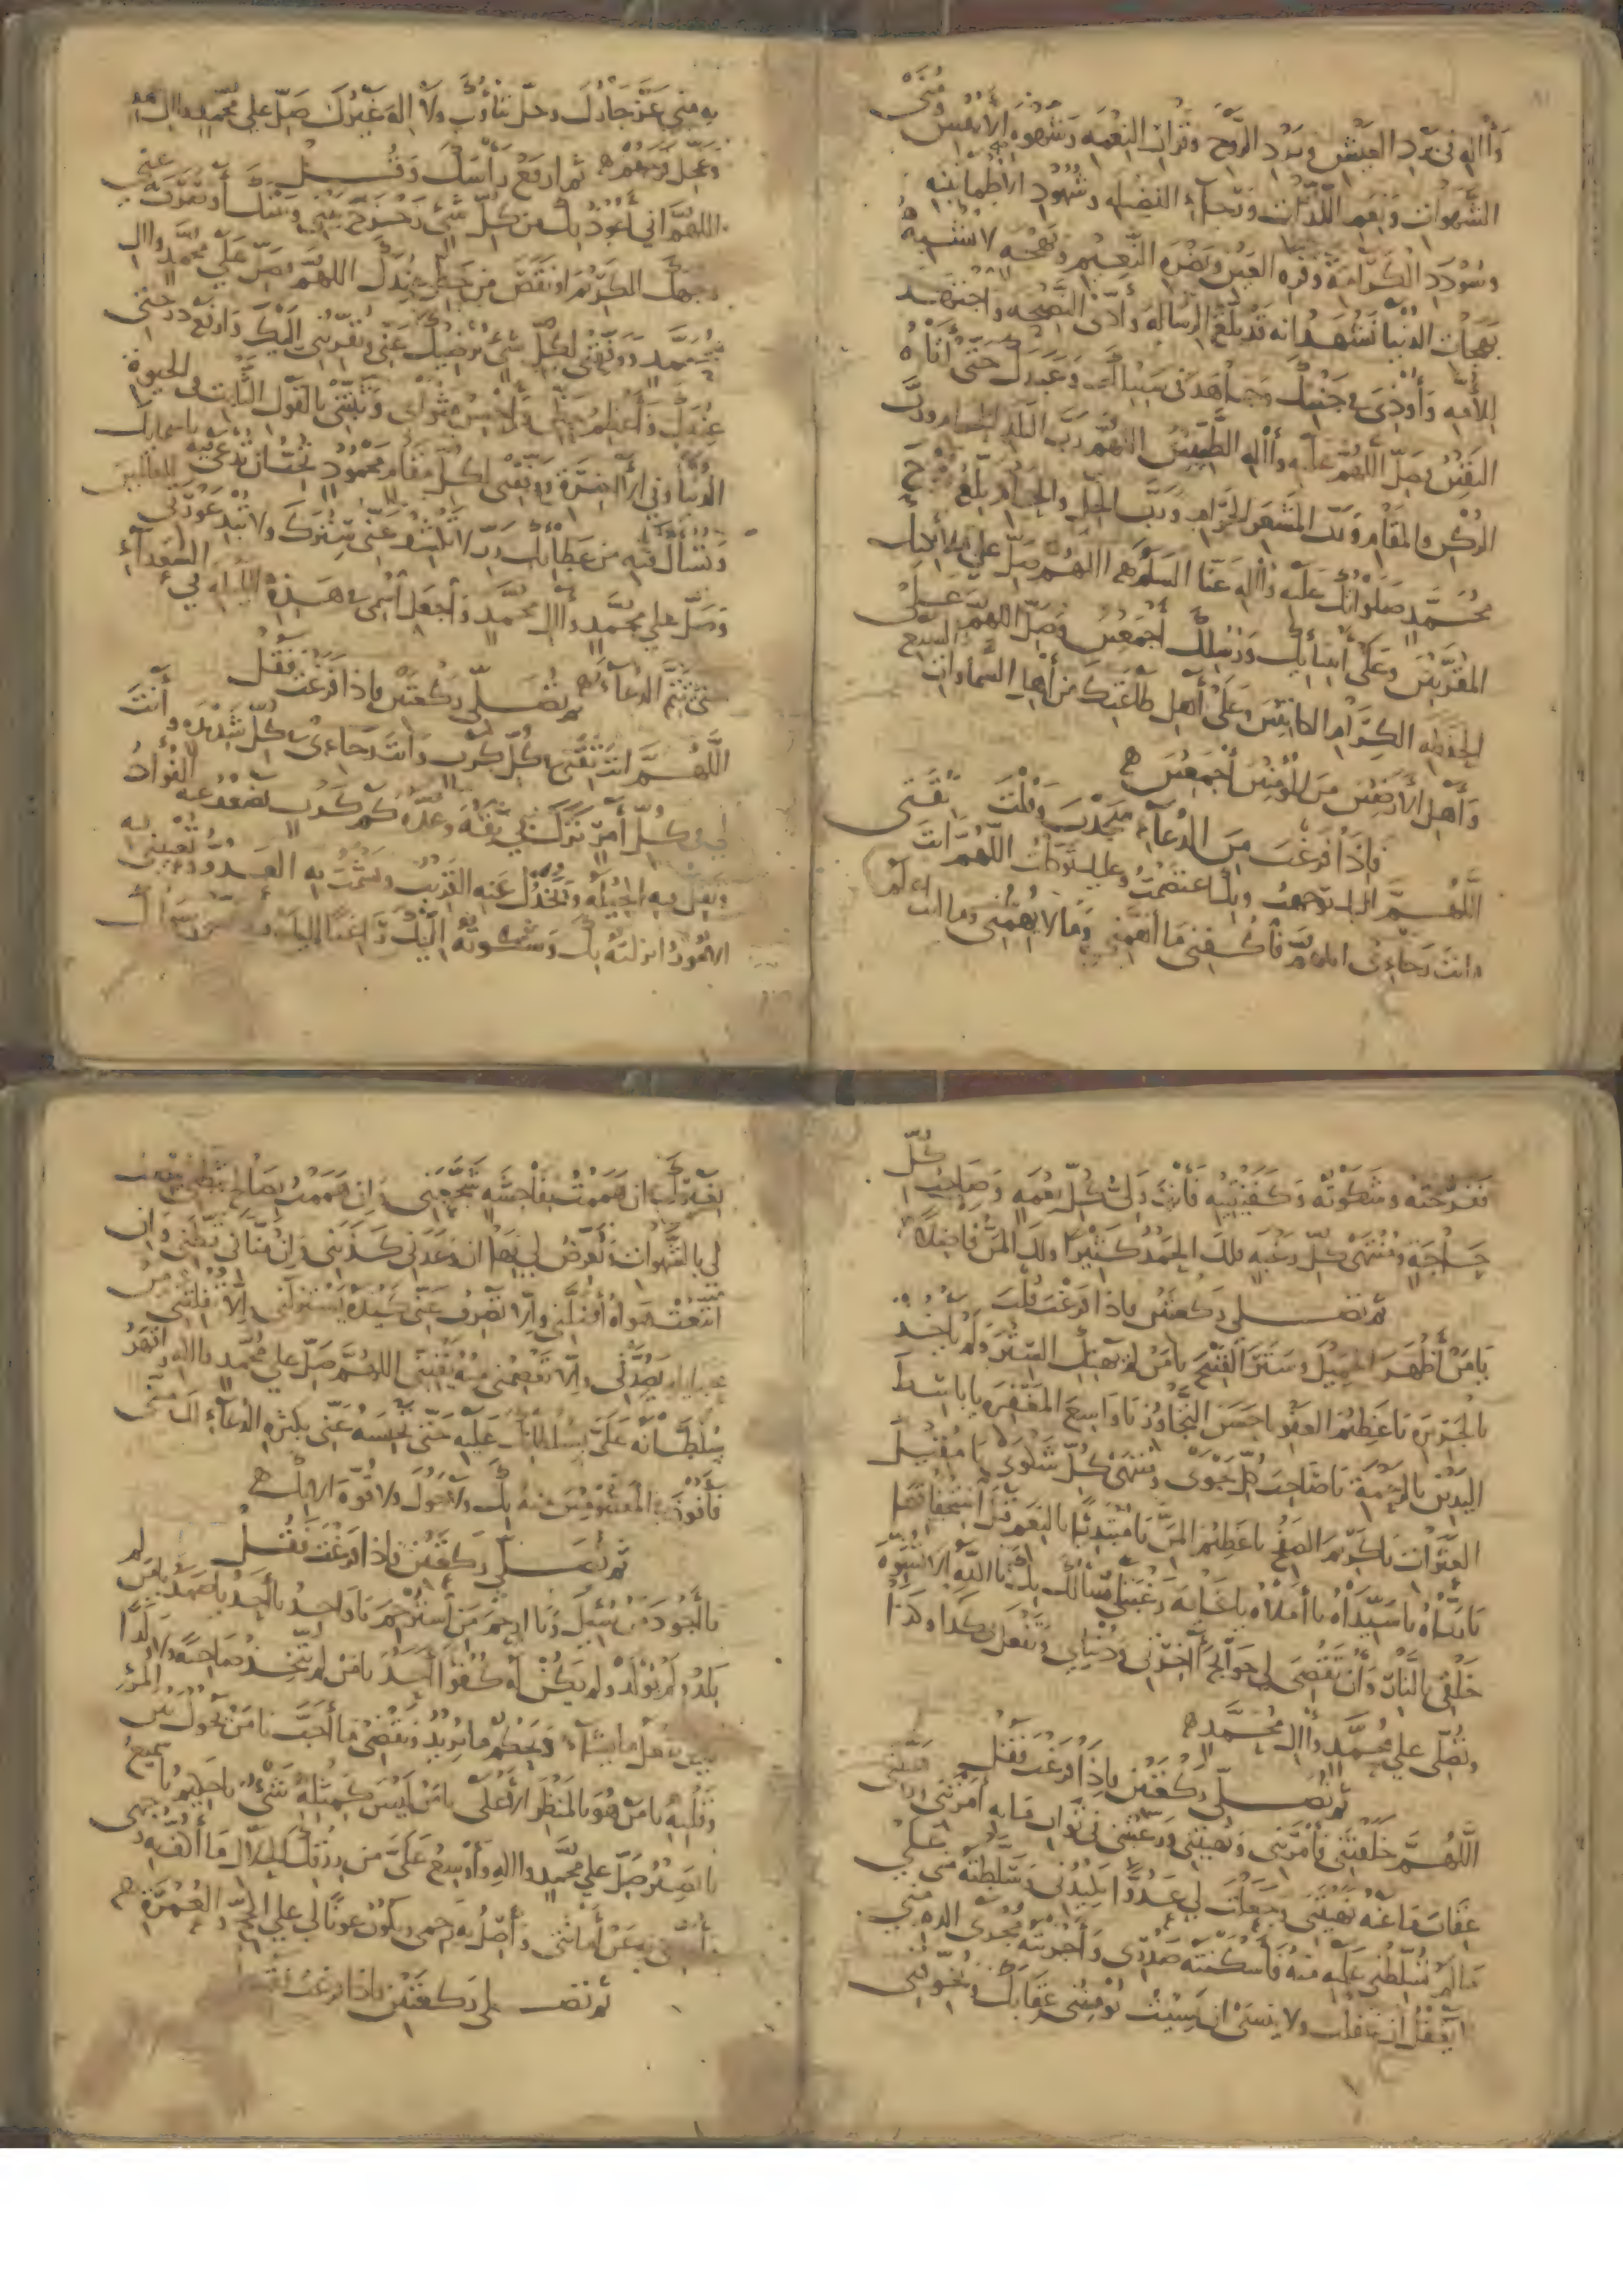 وَآله في بَرد العَيْش وبَرْد الرَّوح وقَرار النِعْمَه وَشَهوه الأَنْفُس ومُنَى
الشَّهوات ونِعَم اللَّذّات ورَجاء الفَضيله وشُهود الطُمأنينه
وسُودَد الكَرامَه وقُرّه العَيْن ونَضْرَه النَّعيم وبَهْجَه لا تُشْبه
بَهجات الدُنيا نَشهدُ انه قد بَلّغ الرساله وأَدّى النَصيحه واجتهد
للأُمّه وَأُوذيَ في جَنْبكَ وجاهَدَ في سَبيلك وَعَبدَك حَتّى أتاه
اليَقينُ فصَلّ اللهُمّ عليه وآله الطَّيّبين اللهُمّ ربَّ البَلَد الحرام وربَّ
الرُكْن والمَقام وَربّ المَشْعَر الحَرام وَربَّ الحِلّ والحَرام بلّغ رُوحَ
مُحَمّدٍ صَلواتُك عَلَيه وَآله عَنّا السَلام اللهُم صَلّ على ملائكتك
المقرّبين وعَلى أنبيائك ورُسُلك أجمَعين وصَلّ اللهُم عَلى
الحَفظه الكِرام الكاتبين وعَلى أَهل طاعَتك من أهل السَّماوات السَبع
وأهل الأرَضين من المُؤمنين أجمَعين
فاذا فَرغتَ مِن الدُعاء سَجدتَ وقُلتَ
اللّهُمّ اليك توجهتُ وبك اعتَصمتُ وعليك تَوكلتُ اللّهُمّ انتَ ثِقَتي
وانتَ رَجاءي اللهُمّ فاكفِني ما أهَمَّني وَما لا يُهِمُّني وما انت اعلَم
به مِنّي عَزّ جَارُك وجَلّ ثَناؤُك ولا اله غَيرُك صَلّ على مُحَمّدٍ وال مُحَمّد
وعَجّل فَرَجَهُم ثم ارفَع رَأسَك وقُــل
اللهُمَّ اني أعُوذ بك من كُلّ شيءٍ زَحْزَحَ بَيْني وبَيْنَك أو صَرَفَ به عنّي
وجهَك الكَريم او نَقَصَ من حَظّي عِندك اللهُمَّ فصَلّ عَلى محمّدٍ وآل
مُحَمّد ووَفّقني لكُلّ شيءٍ يُرضِيك عَنّي ويُقَرّبُني إلَيْك وَارفَع دَرَجَتي
عِنْدَك وَأَعْظِم حَظّي وأَحْسِنْ مَثْواي وَثَبّتْني بالقَول الثّابت في الحَيوة
الدُنيا وفي الآخِرَة ووَفّقْني لكُلّ مَقامٍ مَحمُودٍ تُحِبّ ان تُدعى فيه باسمائك
وتُسأل فيه من عَطائك رَبّ لا تَكشِف عَنّي سِتْرَك ولا تُبْدِ عَوْرَتي للعالمين
وصَلّ علي مُحَمّدٍ وآل مُحمّدٍ واجعَل اسْمي في هذه الليله في السُعَداء
حتّى تُتِمّ الدعاء ثم تُصَلّي رَكْعَتَيْن فاذا فَرَغتَ فَقُل
اللّهُــمّ انتَ ثِقَتي في كُلّ كَرْبٍ وأنتَ رجاءي في كُلّ شِدَّه وأَنتَ
لي في كُلّ أمرٍ نَزَل بي ثِقَه وعُدّه كم من كَرْبٍ يَضْعُف عنه الفُؤاد
وتَقِلّ فيه الحِيله ويَخْذُل عَنه القَريبُ ويَشْمَتُ به العَدُوّ وتُعْيِيني فيه
الامُورُ انزلتُه بك وَشكَوتُه الَيْك راغِباً اليك فيه عمّن سِواك
فَفَرَّجتَه وشكوتُه وَكَفَيْتَنِيه فَأنتَ وَليّ كُلّ نِعْمَه وصَاحِبُ كُلّ
حَاجَةٍ ومُنْتَهى كُلّ رَغبه فلكَ الحَمدُ كثيراً ولكَ المَنُّ فاضِلاً
ثم تُصَــلي رَكعتَيْن فاذا فَرَغتَ قُلتَ
يا مَن أَظْهَر الجَميلَ وسَتَرَ القَبيْح يا مَن لم يَهتِك السِتْر وَلَم يُاخِذ
بالجَرِيرَة يا عَظيْمَ العَفْو يا حَسَن التَجَاوُز يا وَاسِع المَغْفِرَه يا باسِطَ
اليَدَيْن بالرحمَة يا صَاحِبَ كُلّ نَجْوى ومُنْتَهى كُلّ شَكْوى يا مُقيلَ
العَثَرات يا كَريْم الصَفْح يا عَظيم المَنّ يا مُبْتدِئاً بالنِعَم قَبل اسْتِحقاقها
يا رَبّاه يا سَيّداه يا أمَلاه يا غايَه رَغْبَتِي أسألك بك يا الله الا تُشَوّه
خَلقي بالنّار وَأن تَقْضي لي حَوائجَ آخِرَتي ودُنياي وتَفعَل بي كذا وكذا
وتُصَلّي علي مُحَمّدٍ وآل مُحَمّدٍ
ثم تُصَــلّي رَكعَتَيْن فاذا فَرغتَ فَقُل
اللّهُــمّ خَلَقتَني فأَمَرْتَني ونَهيْتَني ورَغّبْتَني في ثَواب ما به أَمَرتَني ورَهّبتَني
عِقابَ ما عَنه نَهيْتَني وجَعلتَ لي عَدُوّا يَكيْدُني وسَلّطتَه مِنّي عَلى
ما لم تُسَلّطني عليه منهُ فأسْكَنتَه صَدْري وأجْرَيتَه مَجْرى الدم مِنّي
لا يَغفُل ان غفلتُ ولا يَنسَى ان نَسِيتُ يُؤمِنُني عِقابَك ويُخوّفني
بغَيْرك ان هَمَمتُ بفاحشَةٍ شَجّعَني وإن هَمَمتُ بصَالِحٍ ثَبّطني يَنصِب
لي بالشّهوات ويُعرِّضُ لي بها ان وَعَدَني كَذَبَني وإن مَنّاني قَنّطني وان
اتبَعتُ هَواه أضَلّني والّا تَصْرِف عَنّي كَيْدَه يَستزِلّني والّا تُفْلِتْني من
حبائله يَصُدّني والّا تَعْصِمْني منه يَفْتِنّي اللهُمّ صَلّ علي مُحَمّدٍ وآله واقهَر
سُلطانَه عَلَيَّ بسُلطانك عَليه حَتّى تَحبِسَهُ عَنّي بكثره الدُعاء لك منّي
فأَفوزَ في المَعْصُومين منه بك ولا حَولَ ولا قُوّة الا بك
ثم تُصَــلّي رَكعتَيْن فاذا فَرغتَ فَقُــل
يا أجوَدَ من سُئِل ويا ارحَم مَن استُرحِم يا واحِد يا أحَد يا صَمَد يا مَن لم
يَلد ولم يُوْلَدْ ولم يَكُنْ له كُفُوًا أحَد يا مَن لم يَتّخِذ صَاحِبَةً ولا وَلَداً
يا مَن يَفعل ما يَشاء ويَحكُم ما يُريدُ ويَقْضِي ما أَحَبّ يا مَنْ يَحُول بَين المَرْء
وقَلْبِه يا مَن هُو بالمنْظَر الأعْلى يا مَن لَيْسَ كمِثْلِه شَيْءٌ يا حَكيم يا سَميعُ
يا بَصيْر صَلّ علي مُحَمّدٍ وآله وأَوْسِعْ عَلَيّ من رِزْقك الحَلال ما أَكُفّ به وَجهي
وأُؤدّي به عَن أَمَانتي وأَصِلُ به رَحِمي ويَكُونُ عَوناً لي على الحَجّ والعُمْرَة
ثم تُصَــلي رَكْعَتَيْن فاذا فَرغتَ فَقُل